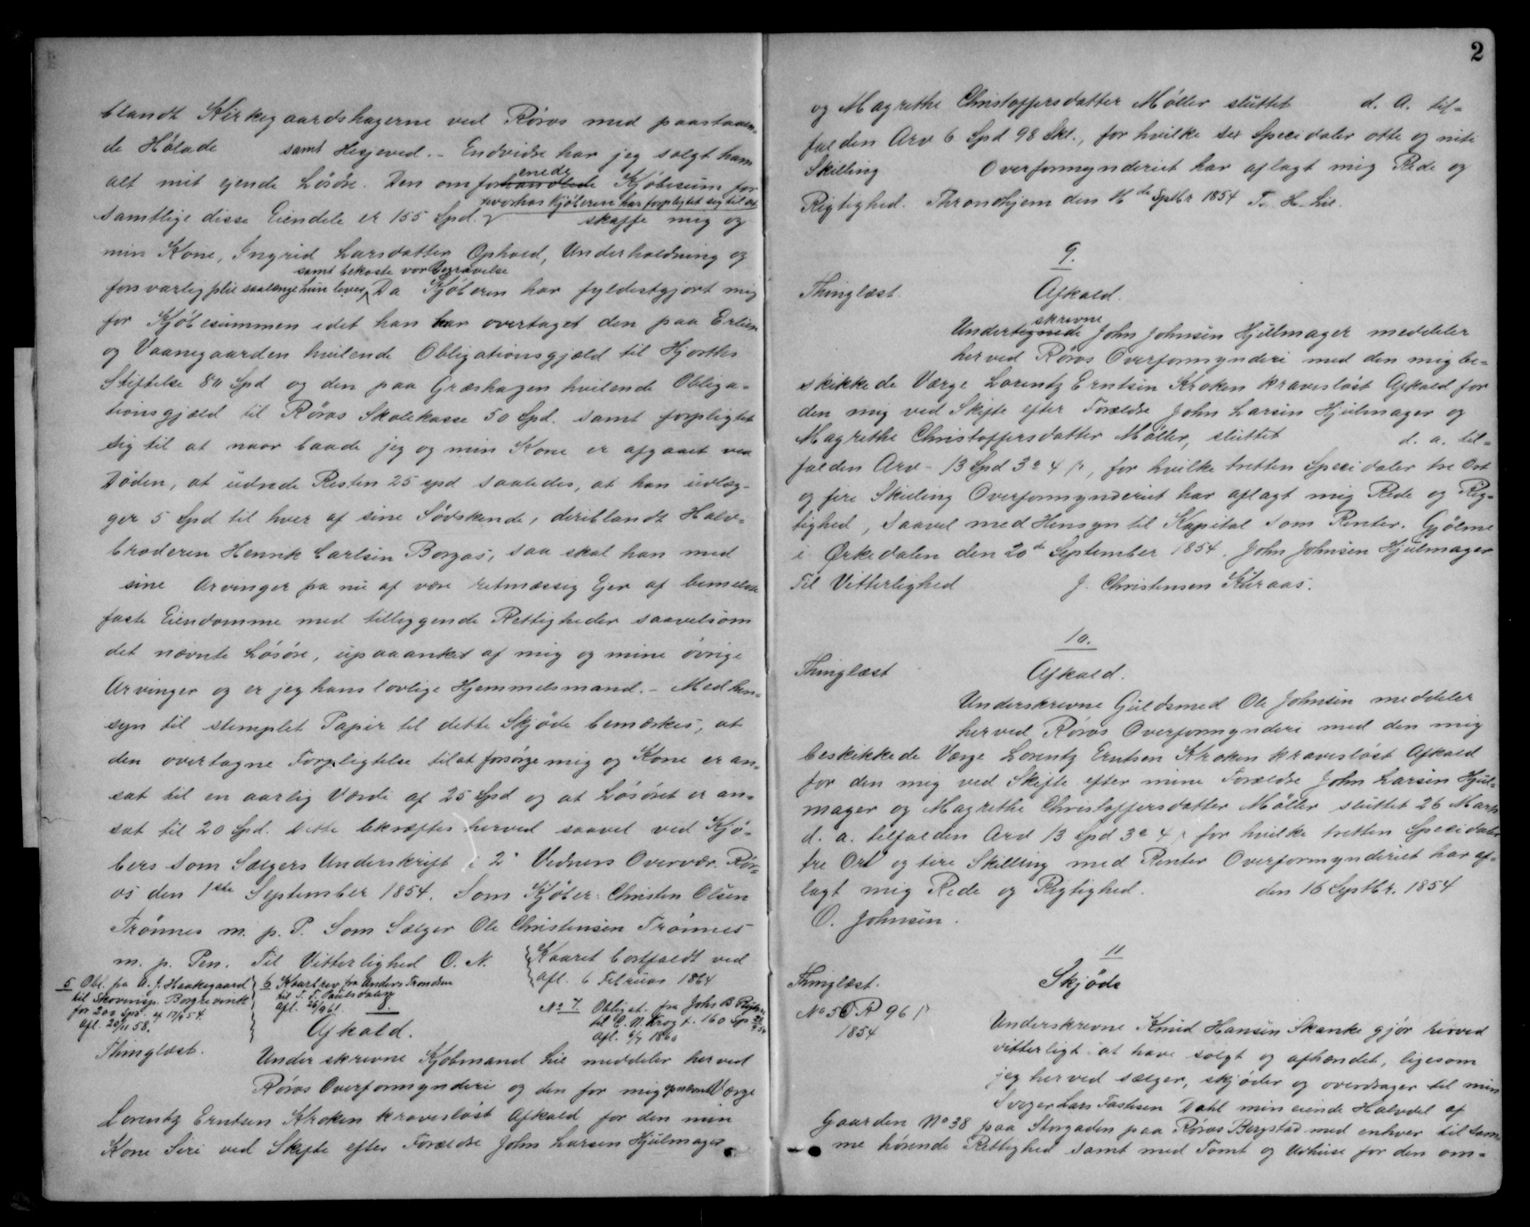 blandt Kirkegaardshagerne ved Røros med paastaaen-
de Hølade samt Hesjeved. - Endvidre har jeg solgt ham
alt mit ejende Løsøre. Den omforenede Kjøbesum for
samtlige disse Eiendele er 155 Spd. hvorhos Kjøberen har forpligtet sig til at skaffe mig og
min Kone, Ingrid Larsdatter Ophold, Underholdning og
forsvarlig pleie saalænge min lever, samt bekoste vor Begravelse Da Kjøberen har fyldestgjort mig
for Kjøbesummen idet han har overtaget den paa Erlien
og Vaanegaarden hvilende Obligationsgjæld til Hjorths
Stiftelse 80 Spd og den paa Græshagen hvilende Obliga-
tionsgjæld til Røros Skolekasse 50 Spd. samt forpligtet
sig til at naar baade jeg og min Kone er afgaaet ved
Døden, at udrede Resten 25 spd saaledes, at han udlæg-
ger 5 Spd til hver af sine Søskende, deriblandt Halv-
broderen Henrik Carlsen Borgos, saa skal han med
sine Arvinger fra nu af være retmæssig Ejer af bemeldte
faste Eiendomme med tilliggende Rettigheder saavelsom
det nævnte Løsøre, upaaanket af mig og mine øvrige
Arvinger og er jeg hans lovlige Hjemmelsmand. - Med hen-
syn til stemplet Papir til dette Skjøde bemærkes, at
den overtagne Forpligtelse til at forsørge mig og Kone er an-
sat til en aarlig Værdi af 25 Spd og at Løsøret er an-
sat til 20 Spd. Dette bekræftes herved saavel ved Kjø-
bers som Sælgers Underskrift i 2 Vidners Overvær. Rør-
os den 1ste September 1854. Som Kjøber: Christen Olsen
Trønnes m. p. P. Som Sælger Ole Christensen Trønnes
m. p. Pen. Til Vitterlighed O. N. Kaaret bortfaldt ved
afl. 6 Februar 1864
5 Obl. fra A. J. Haakegaard
til Skovinsp. Borgrevink
for 200 Spd.
afl. 20/11 58.
6 Kaarbrev fra Anders Trondsen
til
afl.
No 7. Obligat. fra John B
til C. N. Krog f. 160 Sp
afl. 1860
8.
Afkald.
Thinglæst.
Underskrevne Kjøbmand Lie meddeler herved
Røros Overformynderi og den for mig opnævnte Værge
Lorentz Erntsen Kroken kravesløst Afkald for den min
Kone Siri ved Skifte efter Forældre John Larsen Hjulmager
2
og Magrethe Christoffersdatter Møller sluttet d. A. til-
falden Arv 6 Spd 98 Skl., for hvilke sex Specidaler otte og niti
Skilling Overformynderiet har aflagt mig Rede og
Rigtighed. Throndhjem den 16de Septbr 1854 T. H. Lie.
9.
Thinglæst.
Afkald.
Underskrevne John Johnsen Hjulmager meddeler
herved Røros Overformynderi med den mig be-
skikkede Værge Lorentz Erntsen Kroken kravesløst Afkald for
den mig ved Skifte efter Forældre John Larsen Hjulmager og
Magrethe Christoffersdatter Møller, sluttet d. a. til-
falden Arv - 13 Spd 3 4, for hvilke tretten Specidaler tre Ort
og fire Skilling Overformynderiet har aflagt mig Rede og Rig-
tighed, saavel med Hensyn til Kapital som Renter. Gjølme
i Ørkedalen den 20de September 1854. John Johnsen Hjulmager
Til Vitterlighed J. Christensen Kaaraas.
10.
Thinglæst
Afkald.
Underskrevne Guldsmed Ole Johnsen meddeler
herved Røros Overformynderi med den mig
beskikkede Værge Lorentz Erntsen Kroken kravesløst Afkald
for den mig ved Skifte efter mine Forældre John Larsen Hjul-
mager og Magrethe Christoffersdatter Møller sluttet 26 Marts
d. a. tilfalden Arv 13 Spd 3 4 for hvilke tretten Specidaler
tre Ort og fire Skilling med Renter Overformynderiet har af-
lagt mig Rede og Rigtighed. den 16 Septbr. 1854
O. Johnsen.
11
Thinglæst.
Skjøde
No 50 P 96
1854
Underskrevne Knud Hansen Skanke gjør herved
vitterligt: at have solgt og afhændet, ligesom
jeg herved sælger, skjøder og overdrager til min
Svoger Lars Jostsen Dahl min eiende Halvdel af
Gaarden No 38 paa Storgaden paa Røros Bergstad med enhver til sam-
me hørende Rettighed samt med Tomt og Udhuse for den om-